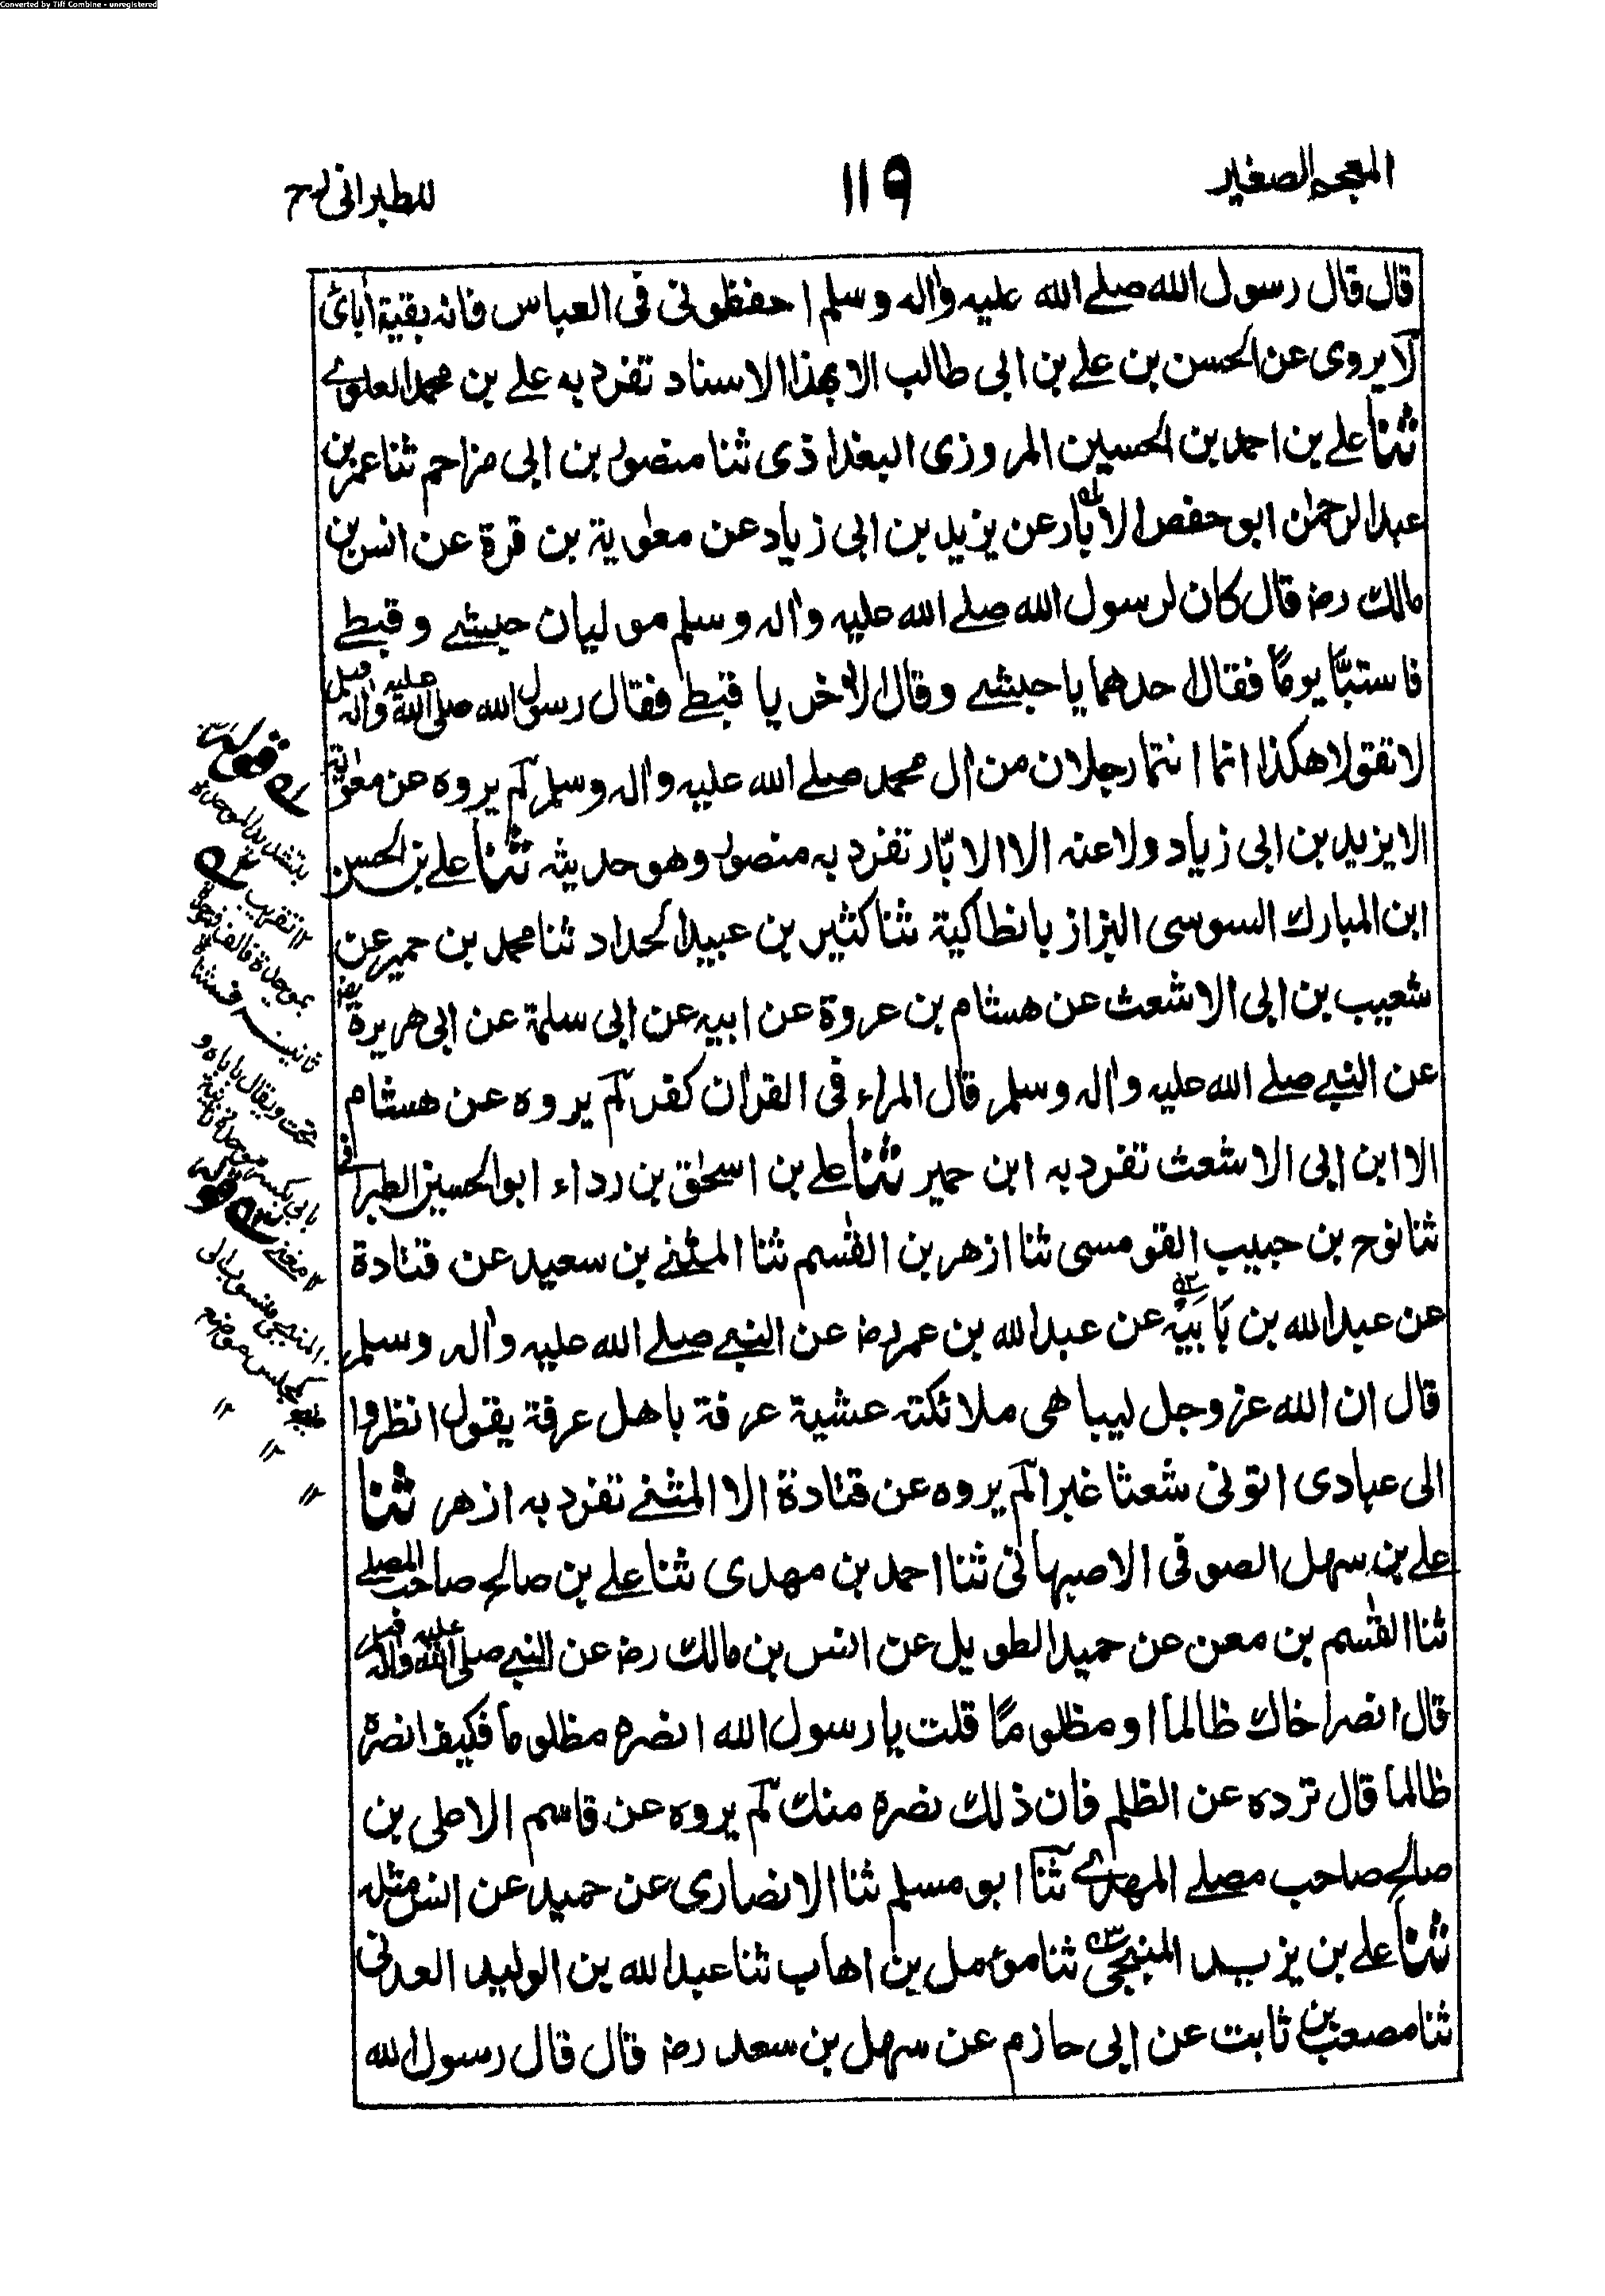 Converted by Tiff Combine - unregistered
المعجم الصغير
١١٩
للطبرانى رح
قال قال رسول الله صلے الله عليه واٰله وسلم احفظونى فى العباس فانه بقية اٰبائى
لا يروى عن الحسن بن علے بن ابى طالب الا بهذا الاسناد تفرد به علے بن محمد العلوے
ثنا علے بن احمد بن الحسين المروزى البغداذى ثنا منصور بن ابى مزاحم ثنا عمر بن
عبد الرحمٰن ابو حفص الابّار عن يزيد بن ابى زياد عن معٰوية بن قرة عن انس بن
مالك رضـ قال كان لرسول الله صلے الله عليه واٰله وسلم موليان حبشے وقبطے
فاستبّا يومًا فقال احدهما يا حبشے وقال الاٰخر يا قبطے فقال رسول الله صلى الله عليه واٰله وسلم
لا تقولا هكذا انما انتما رجلان من اٰل محمد صلے الله عليه واٰله وسلم لم يروه عن معٰوية
الا يزيد بن ابى زياد ولا عنه الا الابّار تفرد به منصور وهو حديثه ثنا علے بن الحسن
ابن المبارك السوسى البزاز بانطاكية ثنا كثير بن عبيد الحداد ثنا محمد بن حمير عن
شعيب بن ابى الاشعث عن هشام بن عروة عن ابيه عن ابى سلمة عن ابى هريرة رضـ
عن النبے صلے الله عليه واٰله وسلم قال المراء فى القراٰن كفر لم يروه عن هشام
الا ابن ابى الاشعث تفرد به ابن حمير ثنا علے بن اسحٰق بن رداء ابو الحسين الطبرانى
ثنا نوح بن حبيب القومسى ثنا ازهر بن القٰسم ثنا المثنے بن سعيد عن قتادة
عن عبد الله بن بَابَيْه عن عبد الله بن عمر رضـ عن النبے صلے الله عليه واٰله وسلم
قال ان الله عز وجل ليباهى ملائكته عشية عرفة باهل عرفة يقول انظروا
الى عبادى اتونى شعثا غبرا لم يروه عن قتادة الا المثنے تفرد به ازهر ثنا
علے بن سهل الصوفى الاصبهانى ثنا احمد بن مهدى ثنا علے بن صالح صاحب المصلے
ثنا القٰسم بن معن عن حميد الطويل عن انس بن مالك رضـ عن النبے صلى الله عليه واٰله وسلم
قال انصر اخاك ظالما او مظلومًا قلت يا رسول الله انصره مظلوما فكيف انصره
ظالما قال ترده عن الظلم فان ذلك نصرة منك لم يروه عن قاسم الا على بن
صالح صاحب مصلے المهدے ثنا ابو مسلم ثنا الانصارى عن حميد عن انس مثله
ثنا علے بن يزيد المنبجى ثنا مؤمل بن اهاب ثنا عبد الله بن الوليد العدنى
ثنا مصعب بن ثابت عن ابى حازم عن سهل بن سعد رضـ قال قال رسول الله
بتشديد الموحدة
١٢ تقريب
بموحدة فالف فموحدة
ثانية
تحت ويقال باباه و
١٢ مغنے
المنبجى منسوب الى
كمجلس موضع
١٢
١٢
١٢